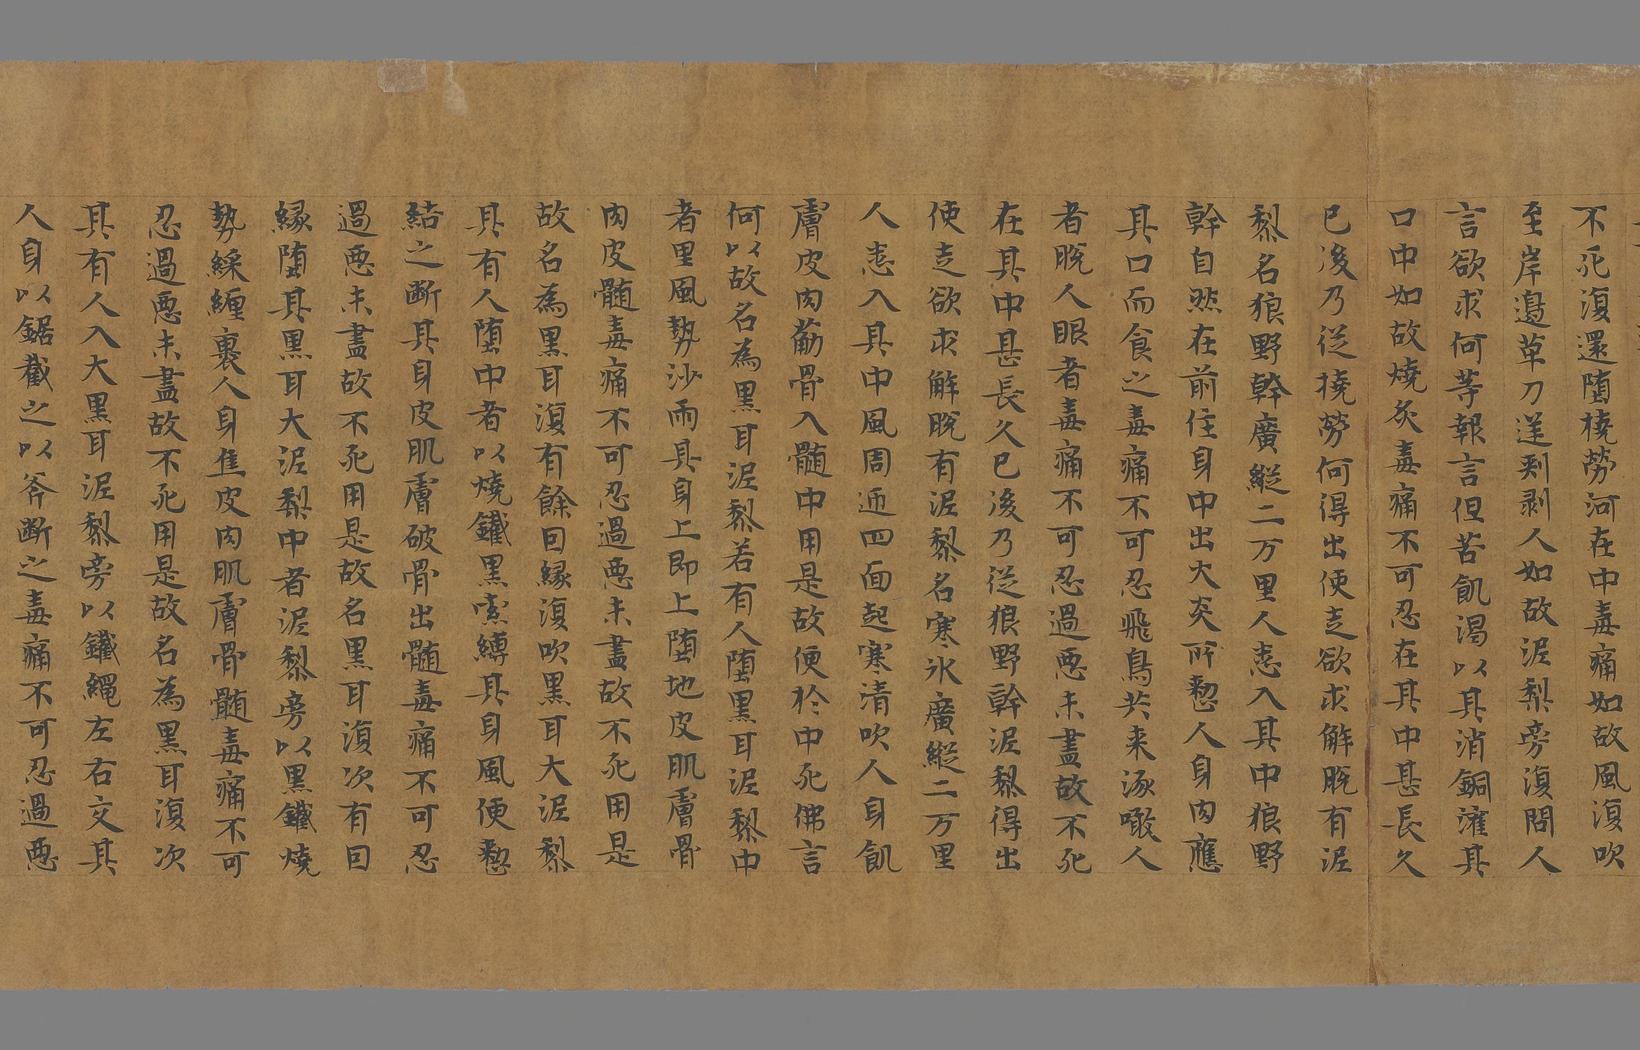 不死復還墮橈勞河在中毒痛如故風復吹
至岸邊草刀逆剌剥人如故泥梨旁復問人
言欲求何等報言但苦飢渴以其消銅灌其
口中如故燒炙毒痛不可忍在其中甚長久
已後乃從橈勞何得出便走欲求解脫有泥
黎名狼野幹廣縱二万里人悉入其中狼野
幹自然在前住身中出大炎所懃人身肉應
其口而食之毒痛不可忍飛鳥共来涿噉人
者脫人眼者毒痛不可忍過惡未盡故不死
在其中甚長久已後乃從狼野幹泥黎得出
使走欲求解脫有泥黎名寒氷廣縱二万里
人悉入其中風周迊四面起寒清吹人身飢
膚皮肉葪骨入髓中用是故便於中死佛言
何以故名為黑耳泥黎若有人墮黑耳泥黎中
者里風勢沙雨其身上即上墮地皮肌膚骨
肉皮髓毒痛不可忍過惡未盡故不死用是
故名為黑耳復有餘回緣復吹黑耳大泥黎
其有人墮中者以燒鐵黑索縛其身風便懃
結之断其身皮肌膚破骨出髓毒痛不可忍
過惡未盡故不死用是故名黑耳復次有回
緣墮其黑耳大泥梨中者泥黎旁以黑鐵燒
勢綵纏裹人身焦皮肉肌膚骨髓毒痛不可
忍過惡未盡故不死用是故名為黑耳復次
其有人入大黑耳泥黎旁以鐵繩左右交其
人身以鋸截之以斧断之毒痛不可忍過惡